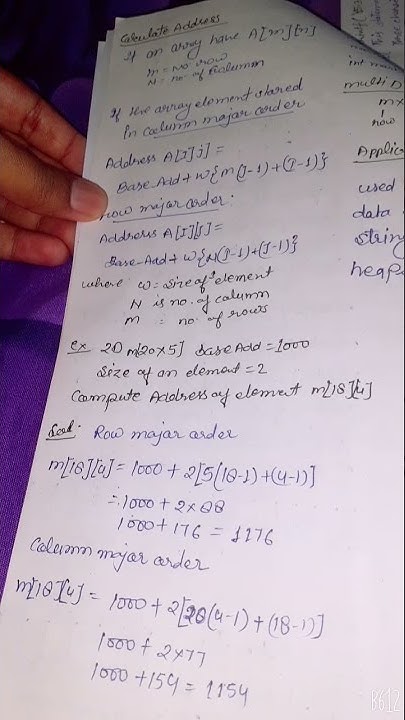 Calculate Address
If an array have A[m][n]
m = no. row
N = no. of Column
If the array element stored
In column major order
Address A[I][J] =
Base Add + W{m(J-1)+(I-1)}
row major order:
Address A[I][J] =
Base Add + W{N(I-1)+(J-1)}
where: W = Size of element
N is no. of column
m = no. of rows
ex 2D m[20x5] Base Add = 1000
Size of an element = 2
Compute Address of element m[18][4]
Sol: Row major order
m[18][4] = 1000 + 2[5(18-1)+(4-1)]
= 1000 + 2x88
1000 + 176 = 1176
Column major order
m[18][4] = 1000 + 2[20(4-1)+(18-1)]
1000 + 2x77
1000 + 154 = 1154
int
multi D
mx
row
Applic
used
data
string
heap
B612